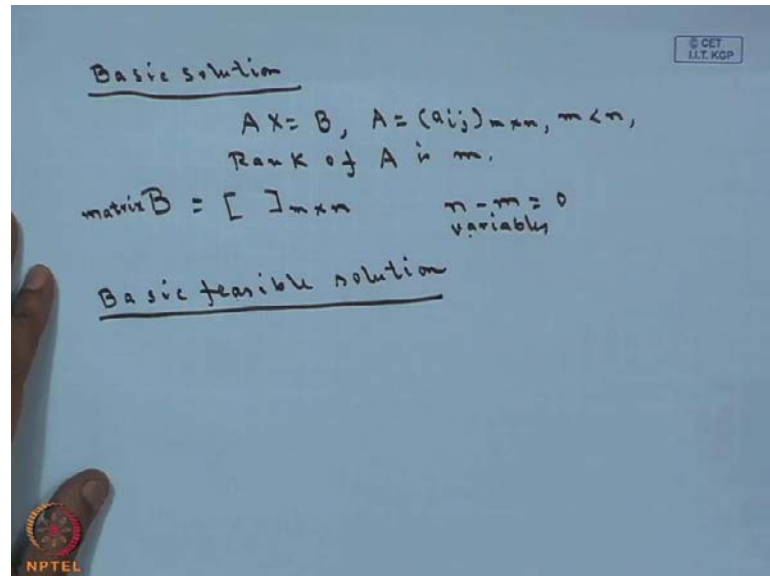 © CET
I.I.T. KGP
Basic solution
AX = B, A = (aij)m×n, m<n,
Rank of A is m.
matrix B = [ ]m×n n - m = 0
variables
Basic feasible solution
NPTEL